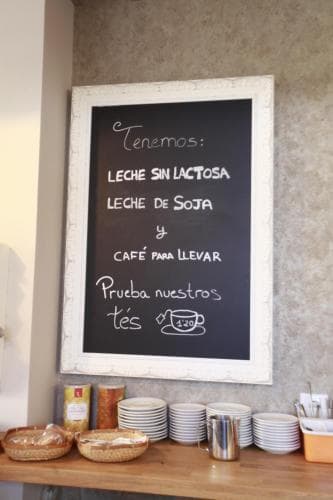 Tenemos:
LECHE SIN LACTOSA
LECHE DE SOJA
y
CAFÉ PARA LLEVAR
Prueba nuestros
tés 1'20